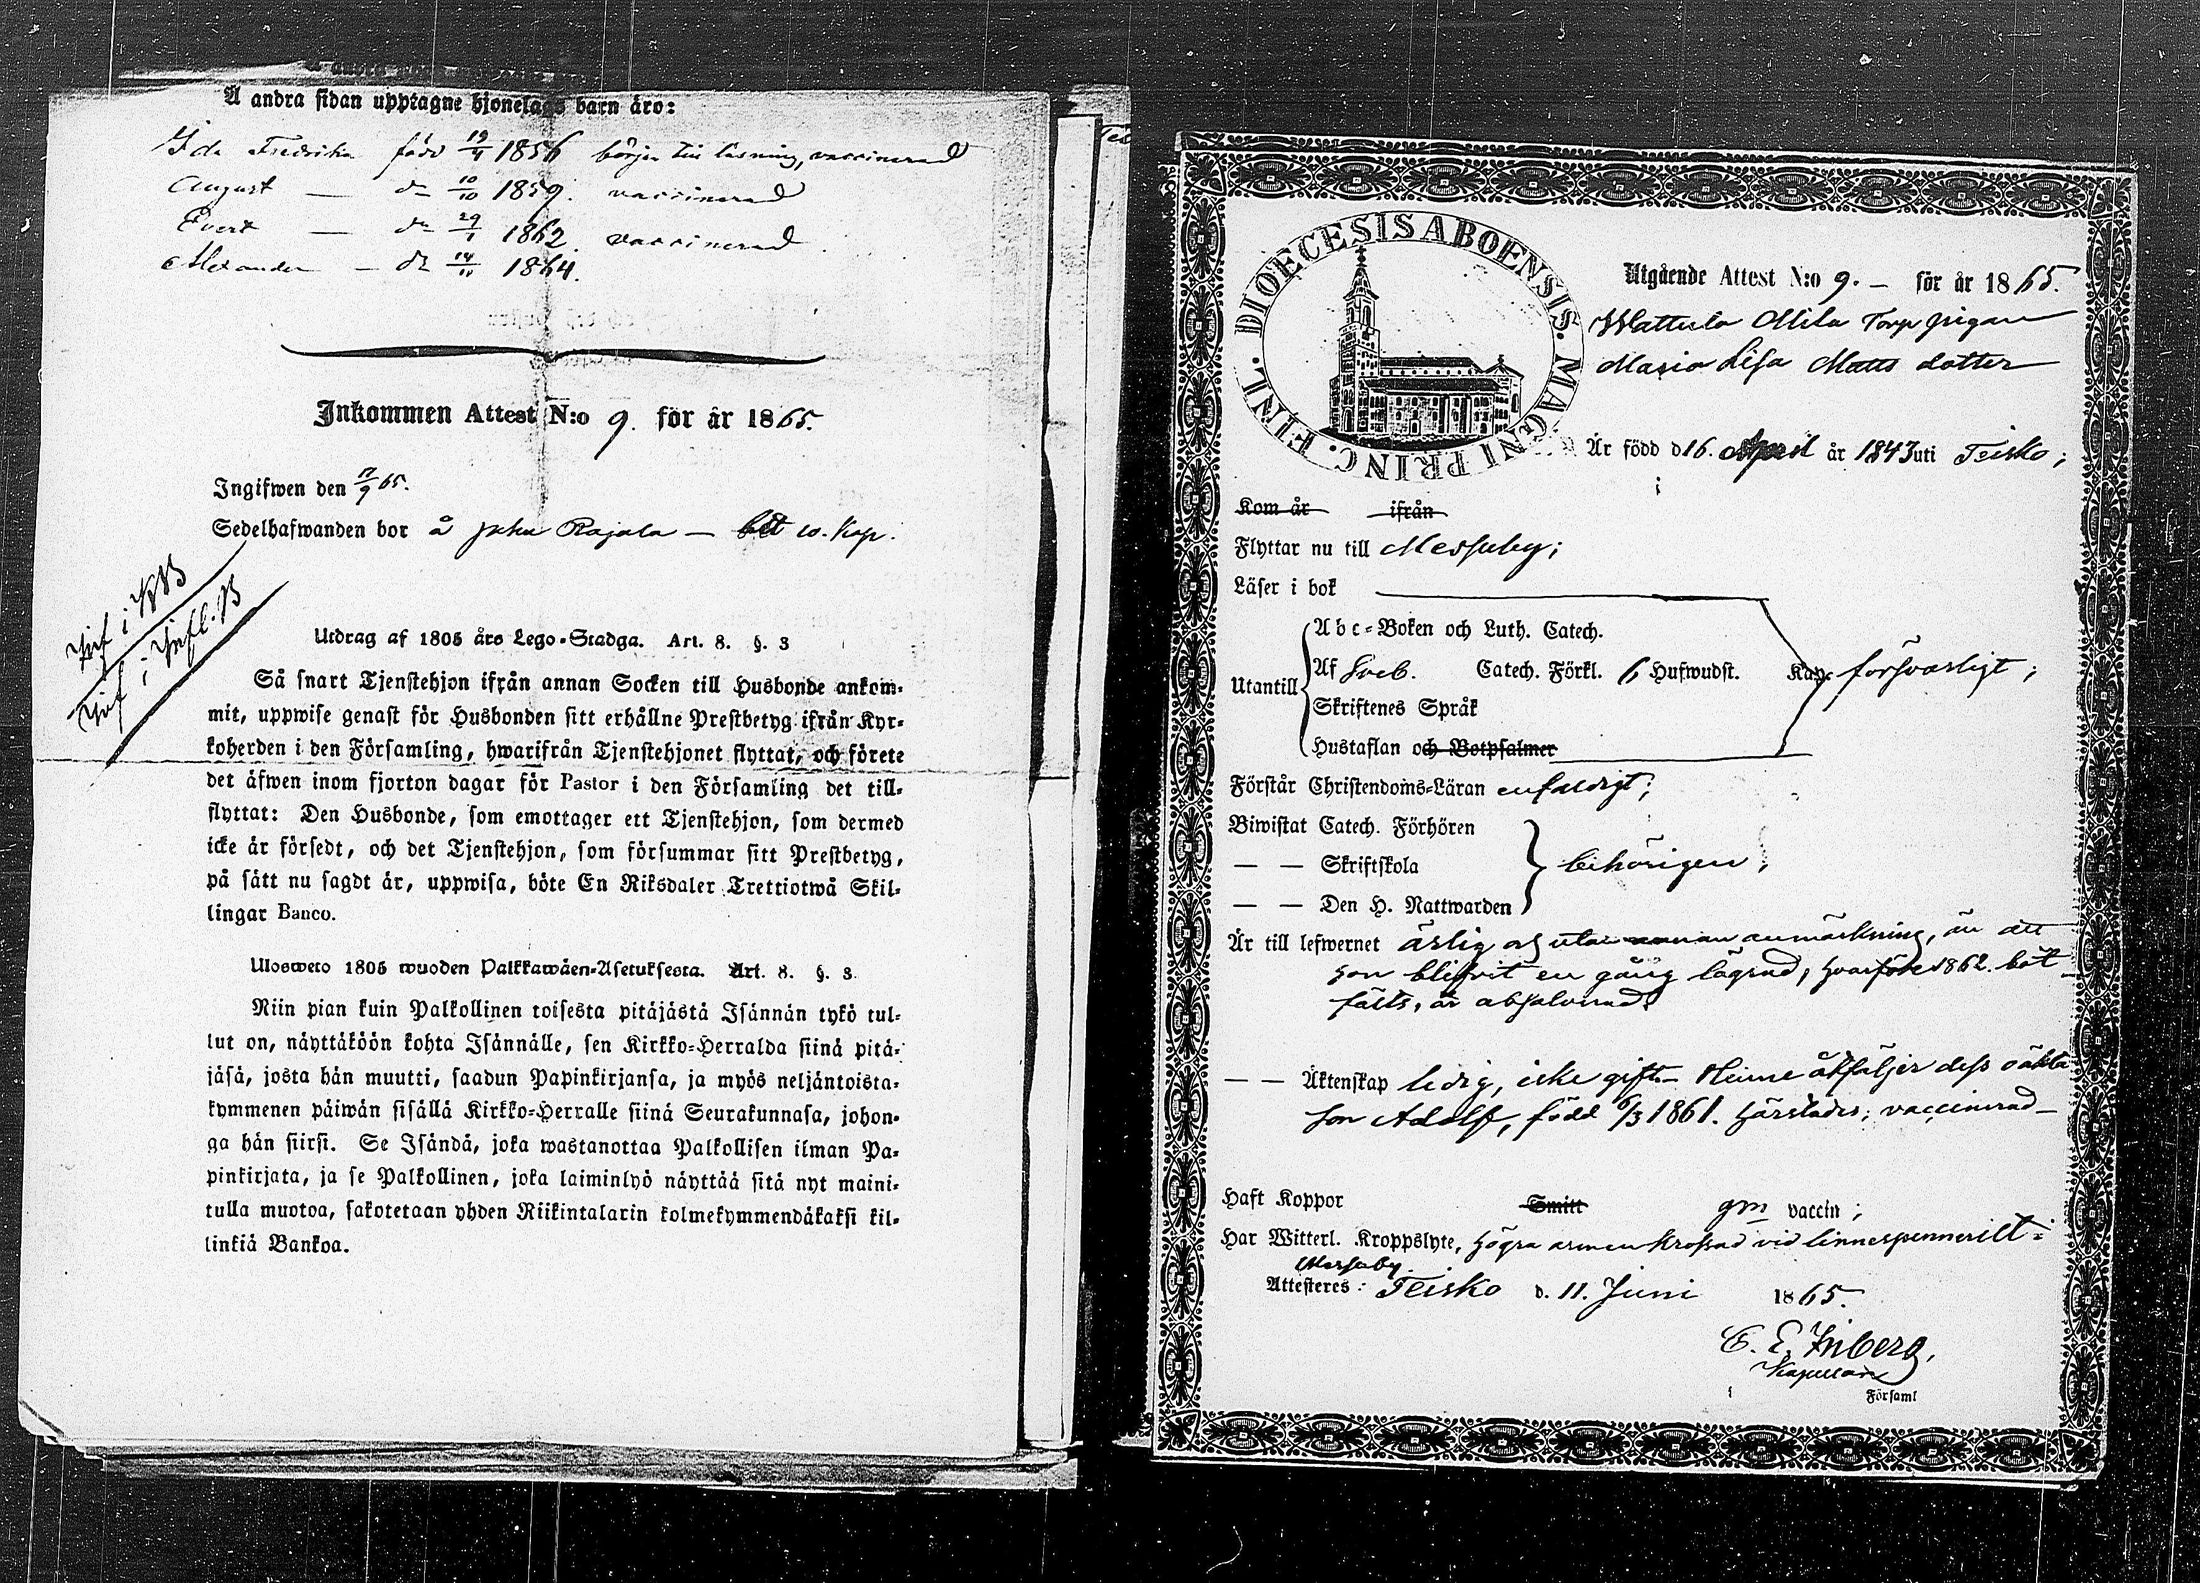 Å andra sidan upptagne hjonelags barn äro:
Ida Fredrika född 19/4 1856 börjar till läsning, vaccinerad
August — dn 10/10 1859. vaccinerad
Evert — dn 29/1 1862. vaccinerad.
Alexander — dn 14/11 1864.
Inkommen Attest N:o 9. för år 1865.
Ingifwen den 17/9 65.
Sedelhafwanden bor å Juhu Rajala — bet 10. Kop.
Inf i KB
Inf i Infl. B
Utdrag af 1805 års Lego-Stadga. Art. 8. §. 3
Så snart Tjenstehjon ifrån annan Socken till Husbonde ankom-
mit, uppwise genast för Husbonden sitt erhållne Prestbetyg ifrån Kyr-
koherden i den Församling, hwarifrån Tjenstehjonet flyttat, och förete
det äfwen inom fjorton dagar för Pastor i den Församling det till-
flyttat: Den Husbonde, som emottager ett Tjenstehjon, som dermed
icke är försedt, och det Tjenstehjon, som försummar sitt Prestbetyg,
på sätt nu sagdt är, uppwisa, böte En Riksdaler Trettiotwå Skil-
lingar Banco.
Ulosweto 1805 wuoden Palkkawäen-Asetuksesta. Art. 8. §. 3.
Niin pian kuin Palkollinen toisesta pitäjästä Isännän tykö tul-
lut on, näyttäköön kohta Isännälle, sen Kirkko-Herralda siinä pitä-
jäsä, josta hän muutti, saadun Papinkirjansa, ja myös neljäntoista-
kymmenen päiwän sisällä Kirkko-Herralle siinä Seurakunnasa, johon-
ga hän siirsi. Se Isändä, joka wastanottaa Palkollisen ilman Pa-
pinkirjata, ja se Palkollinen, joka laiminlyö näyttää sitä nyt maini-
tulla muotoa, sakotetaan yhden Riikintalarin kolmekymmendäkaksi kil-
linkiä Bankoa.
DIOECESIS ABOENSIS. MAGNI PRINC. FINL.
Utgående Attest N:o 9. — för år 1865.
Wattula Mila Torp pigan
Maria Lisa Matts dotter
Är född d 16. April år 1843 uti Teisko;
Kom år ifrån
Flyttar nu till Messuby;
Läser i bok
Utantill
Abc-Boken och Luth. Catech.
Af Sveb. Catech. Förkl. 6 Hufwudst. Kap. försvarligt;
Skriftenes Språk
Hustaflan och Botpsalmer
Förstår Christendoms-Läran enfaldigt;
Biwistat Catech. Förhören
— — Skriftskola behörigen;
— — Den H. Nattwarden
Är till lefwernet ärlig och utan annan anmärkning, än att
hon blifvit en gång lägrad, hvarföre 1862. bot
fälts, är absolverad.
— — Äktenskap ledig, icke gift. — Henne åtföljer dess oäkta
son Adolf, född 6/3 1861. härstädes; vaccinerad —
Haft Koppor Smitt gm vaccin;
Har Witterl. Kroppslyte, högra armen krossad vid linnespenneriet i
Messuby.
Attesteres: Teisko d. 11. Juni 1865.
C. E. Inberg,
Kapellan
Församl